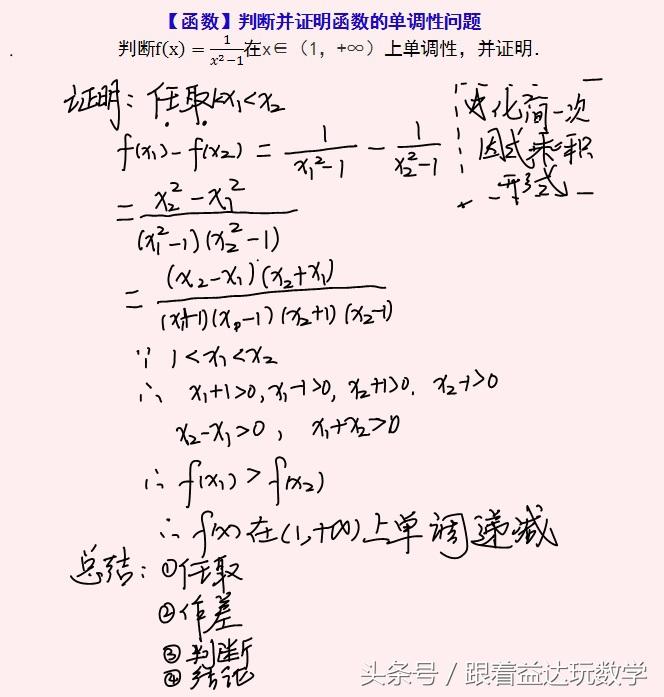 【函数】判断并证明函数的单调性问题
判断f(x)=1/(x²-1)在x∈（1，+∞）上单调性，并证明.
证明：任取1<x₁<x₂
f(x₁)-f(x₂) = 1/(x₁²-1) - 1/(x₂²-1)
化简一次
因式乘积
形式
= (x₂²-x₁²)/((x₁²-1)(x₂²-1))
= (x₂-x₁)(x₂+x₁)/((x₁+1)(x₁-1)(x₂+1)(x₂-1))
∵ 1<x₁<x₂
∴ x₁+1>0, x₁-1>0, x₂+1>0, x₂-1>0
x₂-x₁>0, x₁+x₂>0
∴ f(x₁)>f(x₂)
∴ f(x)在(1,+∞)上单调递减
总结：①任取
②作差
③判断
④结论
头条号／跟着益达玩数学